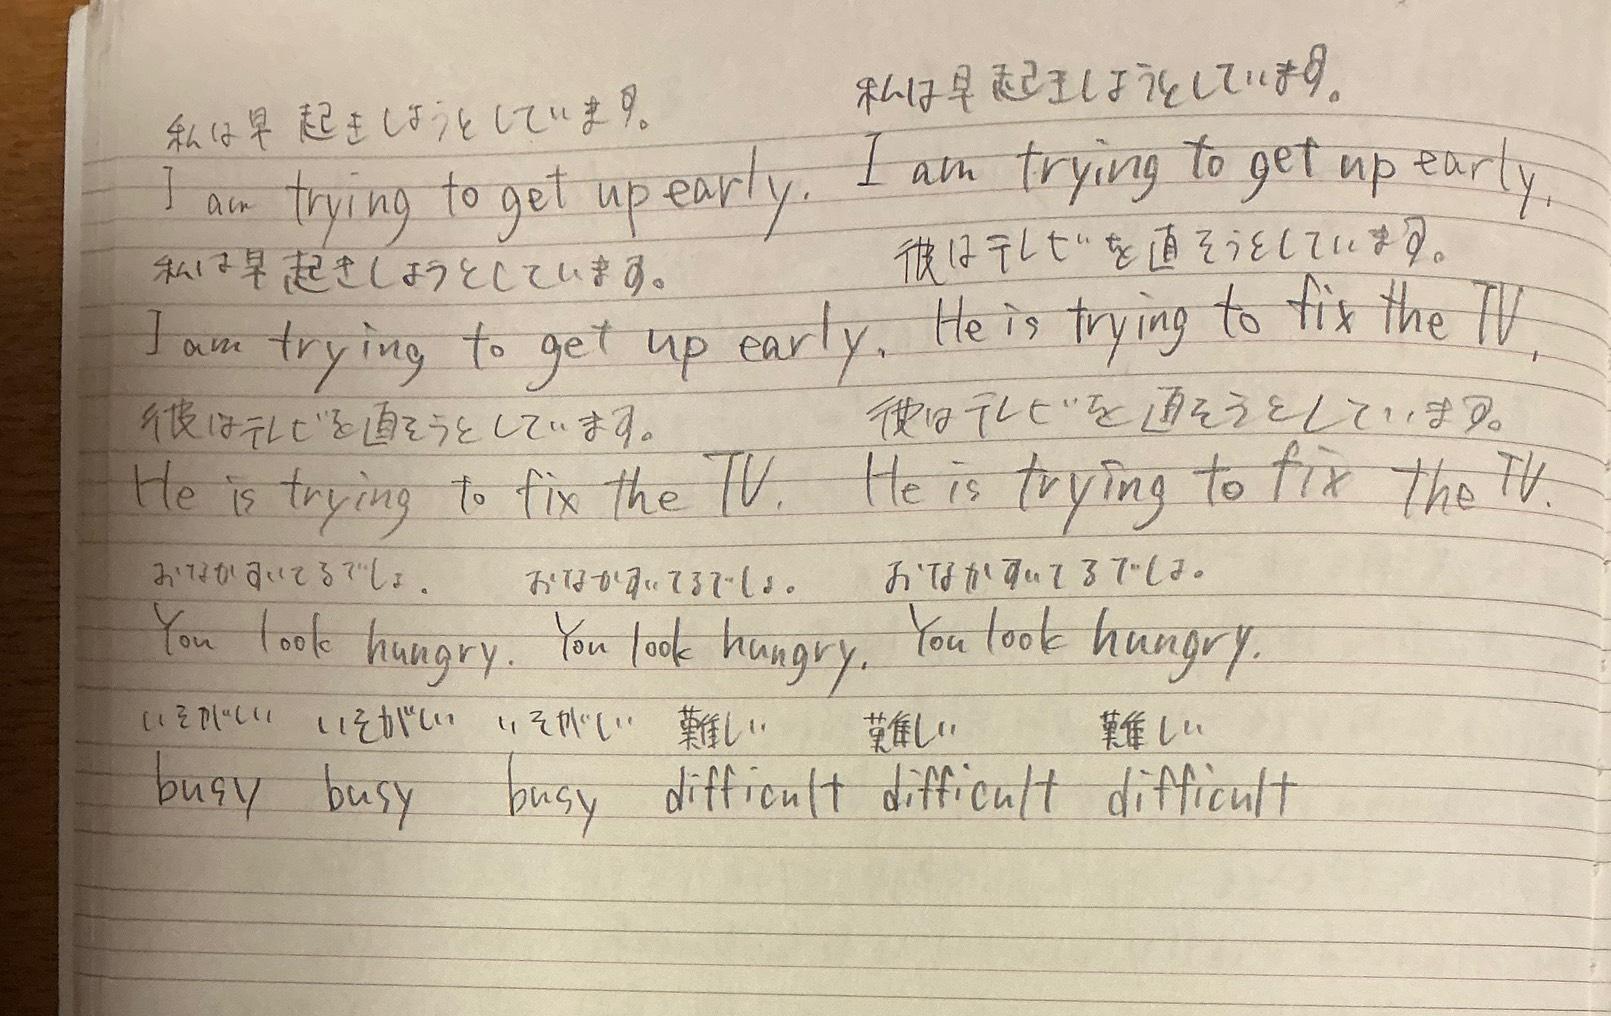 私は早起きしようとしています。 私は早起きしようとしています。
I am trying to get up early. I am trying to get up early.
私は早起きしようとしています。 彼はテレビを直そうとしています。
I am trying to get up early. He is trying to fix the TV.
彼はテレビを直そうとしています。 彼はテレビを直そうとしています。
He is trying to fix the TV. He is trying to fix the TV.
おなかすいてるでしょ。 おなかすいてるでしょ。 おなかすいてるでしょ。
You look hungry. You look hungry. You look hungry.
いそがしい いそがしい いそがしい 難しい 難しい 難しい
busy busy busy difficult difficult difficult